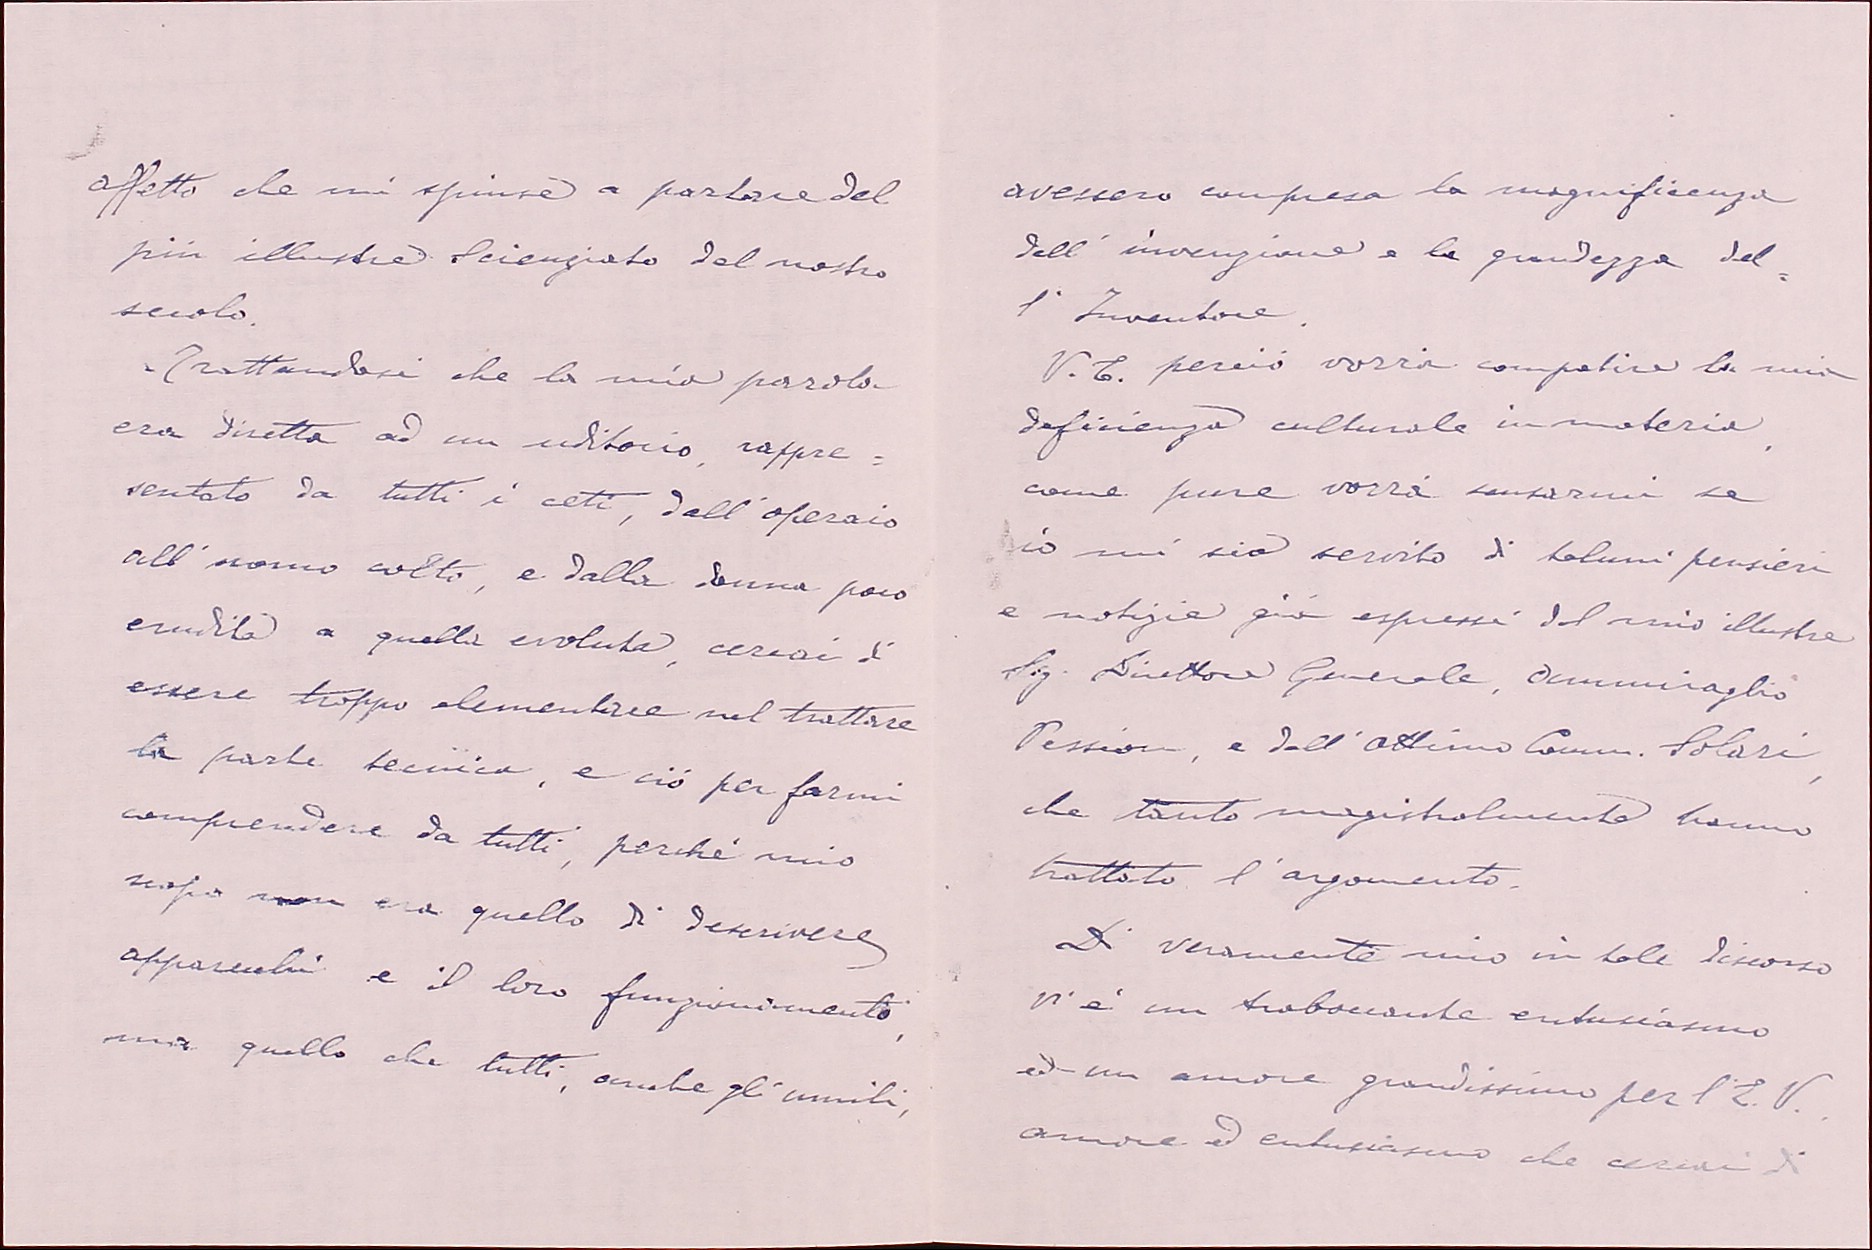 affetto che mi spinse a parlare del
più illustre Scienziato del nostro
secolo.
Trattandosi che la mia parola
era diretta ad un uditorio, rappre=
sentato da tutti i ceti, dall'operaio
all'uomo colto, e dalla donna poco
erudita a quella evoluta, cercai di
essere troppo elementare nel trattare
la parte tecnica, e ciò per farmi
comprendere da tutti, perché mio
scopo non era quello di descrivere
apparecchi e il loro funzionamento,
ma quello che tutti, anche gli umili,
avessero compresa la magnificenza
dell'invenzione e la grandezza del=
l'Inventore.
V.E. perciò vorrà compatire la mia
deficienza culturale in materia,
come pure vorrà scusarmi se
io mi sia servito di taluni pensieri
e notizie già espressi dal mio illustre
Sig. Direttore Generale, Ammiraglio
Pession, e dall'ottimo Comm. Solari,
che tanto magistralmente hanno
trattato l'argomento.
Di veramente mio in tale discorso
v'è un traboccante entusiasmo
ed un amore grandissimo per l'E.V.,
amore ed entusiasmo che cercai di